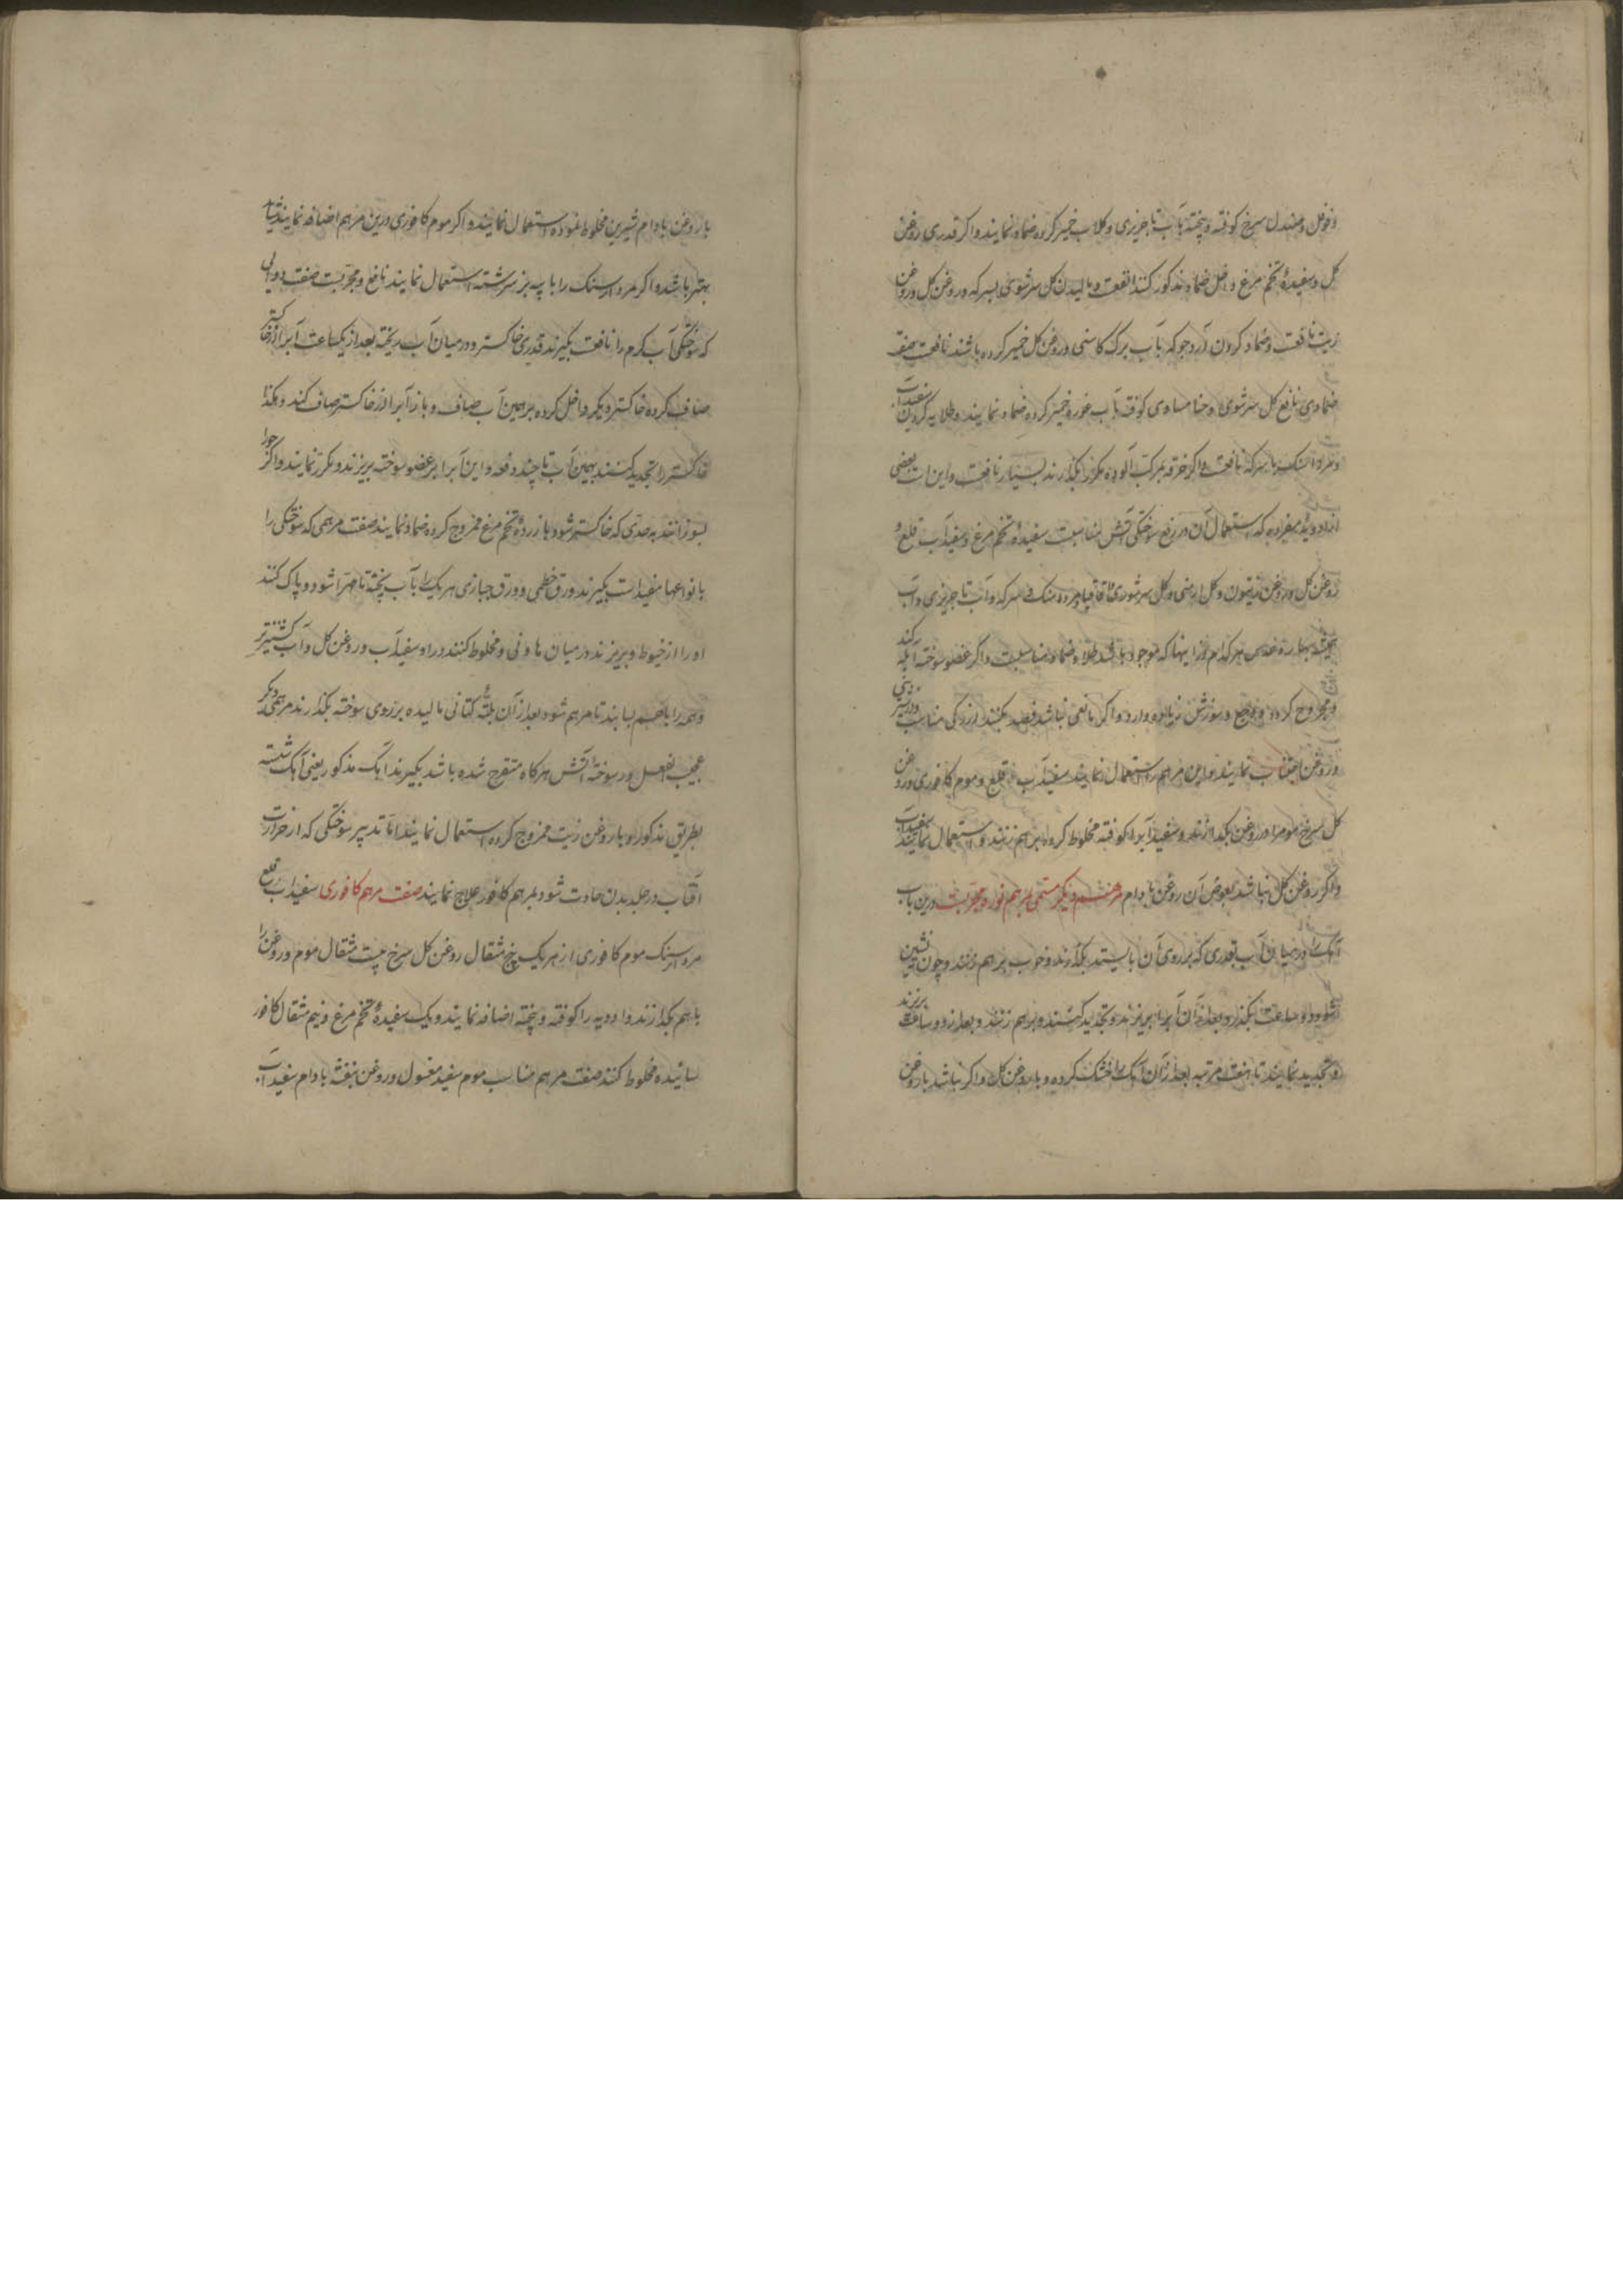 و فوفل و صندل سرخ کوفته و پخته بآب تاجریزی و کلاب خمیر کرده ضماد نمایند و اکر قدری روغن
کل و سفیدهٔ تخم مرغ داخل ضماد مذکور کنند انفعست و مالیدن کل سرشوی بسرکه و روغن کل و روغن
زیت نافعست و ضماد کردن آرد جو که بآب برک کاسنی و روغن کل خمیر کرده باشند نافعست صفت
ضمادی نافع کل سرشوی و حنا مساوی کوفته بآب غوره خمیر کرده ضماد نمایند و طلا کردن سفیدآب
و مرداسنک با سرکه نافعست و اکر خرقه بمرکب آلوده مکرر بکذارند بسیار نافعست و این است بعضی
از ادویهٔ مفرده که استعمال آن در رفع سوختکی آتش مناسبست سفیدهٔ تخم مرغ و سفیدآب قلع و
روغن کل و روغن زیتون و کل ارمنی و کل سرشوی و اقاقیا و مرده سنک و سرکه و آب تاجریزی و آب
عدس هر کدام از اینها که موجود باشد طلا و ضماد مناسبست و اکر عضو سوخته آبله کند
و مجروح کردد و وجع و سوزش زیاد و وارد و اکر مانعی نباشد فصد کنند از رکی مناسب و از شیرینی
و روغن اجتناب نمایند و این مرهم را استعمال نمایند سفیدآب قلع و موم کافوری و روغن
کل سرخ موم را در روغن بکدازند و سفیدآب را کوفته مخلوط کرده بر هم زنند و استعمال نمایند
و اکر روغن کل نباشد بعوض آن روغن بادام مرهم دیکر مسمی بمرهم نوره مجربست درین باب
آهک را در میان آب بقدری که بر روی آن بایستد بکذارند و خوب بر هم زنند و چون ته نشین
شود دو ساعت بکذارد بعد از آن آب را بریزند و تجدید کنند و بر هم زنند و بعد از دو ساعت بریزند
و تجدید نمایند تا هفت مرتبه بعد از آن آهک را خشک کرده و با روغن کل و اکر نباشد با روغن
با روغن بادام شیرین مخلوط نموده استعمال نمایند و اکر موم کافوری درین مرهم اضافه نمایند شاید
بهتر باشد و اکر مرداسنک را با پیه بز سرشته استعمال نمایند نافع و مجربست صفت دوایی
که سوختکی آب کرم را نافعست بکیرند قدری خاکستر و در میان آب ریخته بعد از یکساعت آب را از خاکستر
صاف کرده خاکستر دیکر داخل کرده بر همین آب صاف و باز آب را از خاکستر صاف کند و هکذا
خاکستر را تجدید کنند بهمین آب تا چند دفعه و این آب را بر عضو سوخته بریزند و مکرر نمایند و اکر جو را
بسوزانند بحدی که خاکستر شود با زردهٔ تخم مرغ ممزوج کرده ضماد نمایند صفت مرهمی که سوختکی را
بانواعها مفید است بکیرند ورق خطمی و ورق خبازی هر یک را بآب پخته تا مهرا شود و پاک کنند
او را از خیوط و بریزند در میان هاونی و مخلوط کنند در او سفیدآب و روغن کل و آب کشنیز تر
و همه را با هم بسایند تا مرهم شود بعد از آن بلتهٔ کتانی مالیده بر روی سوخته بکذارند مرهمی دیکر
عجیب الفعل در سوختهٔ آتش هرکاه متقرح شده باشد بکیرند آهک مذکور یعنی آهک شسته
بطریق مذکور و با روغن زیت ممزوج کرده استعمال نمایند اما تدبیر سوختکی که از حرارت
آفتاب در جلد بدن حادث شود بمرهم کافور علاج نمایند صفت مرهم کافوری سفیداب قلع
مرداسنک موم کافوری از هر یک پنج مثقال روغن کل سرخ بیست مثقال موم و روغن را
با هم بکدازند و ادویه را کوفته و بیخته اضافه نمایند و یک سفیدهٔ تخم مرغ و نیم مثقال کافور
سائیده مخلوط کنند صفت مرهم مناسب موم سفید مغسول و روغن بنفشه بادام سفیدآب